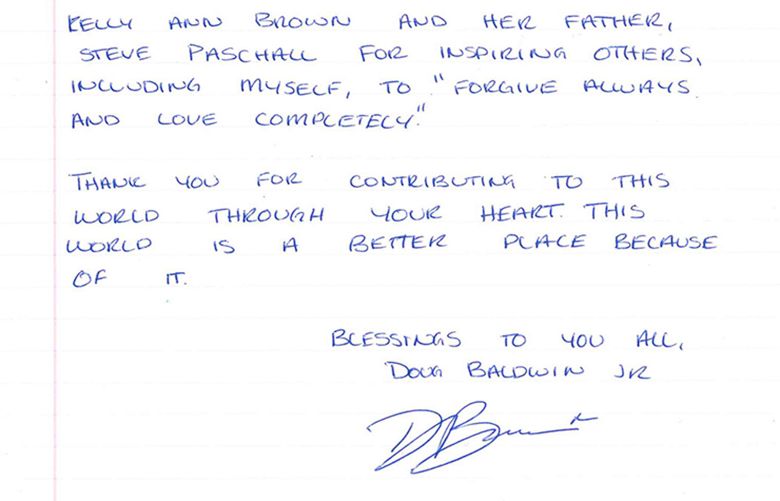 KELLY ANN BROWN AND HER FATHER,
STEVE PASCHALL FOR INSPIRING OTHERS,
INCLUDING MYSELF, TO "FORGIVE ALWAYS
AND LOVE COMPLETELY."
THANK YOU FOR CONTRIBUTING TO THIS
WORLD THROUGH YOUR HEART. THIS
WORLD IS A BETTER PLACE BECAUSE
OF IT.
BLESSINGS TO YOU ALL,
DOUG BALDWIN JR